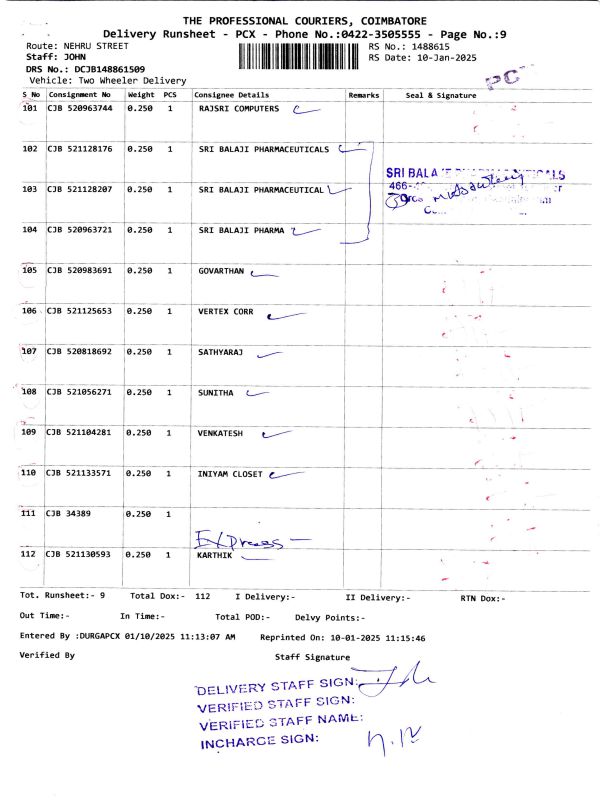 THE PROFESSIONAL COURIERS, COIMBATORE
Delivery Runsheet - PCX - Phone No.:0422-3505555 - Page No.:9
Route: NEHRU STREET RS No.: 1488615
Staff: JOHN RS Date: 10-Jan-2025
DRS No.: DCJB148861509
Vehicle: Two Wheeler Delivery
PCX
S No Consignment No Weight PCS Consignee Details Remarks Seal & Signature
101 CJB 520963744 0.250 1 RAJSRI COMPUTERS
102 CJB 521128176 0.250 1 SRI BALAJI PHARMACEUTICALS
SRI BALAJI PHARMACEUTICALS
103 CJB 521128207 0.250 1 SRI BALAJI PHARMACEUTICAL
104 CJB 520963721 0.250 1 SRI BALAJI PHARMA
105 CJB 520983691 0.250 1 GOVARTHAN
106 CJB 521125653 0.250 1 VERTEX CORR
107 CJB 520818692 0.250 1 SATHYARAJ
108 CJB 521056271 0.250 1 SUNITHA
109 CJB 521104281 0.250 1 VENKATESH
110 CJB 521133571 0.250 1 INIYAM CLOSET
111 CJB 34389 0.250 1
EXpress
112 CJB 521130593 0.250 1 KARTHIK
Tot. Runsheet:- 9 Total Dox:- 112 I Delivery:- II Delivery:- RTN Dox:-
Out Time:- In Time:- Total POD:- Delvy Points:-
Entered By :DURGAPCX 01/10/2025 11:13:07 AM Reprinted On: 10-01-2025 11:15:46
Verified By Staff Signature
DELIVERY STAFF SIGN:
VERIFIED STAFF SIGN:
VERIFIED STAFF NAME:
INCHARGE SIGN: